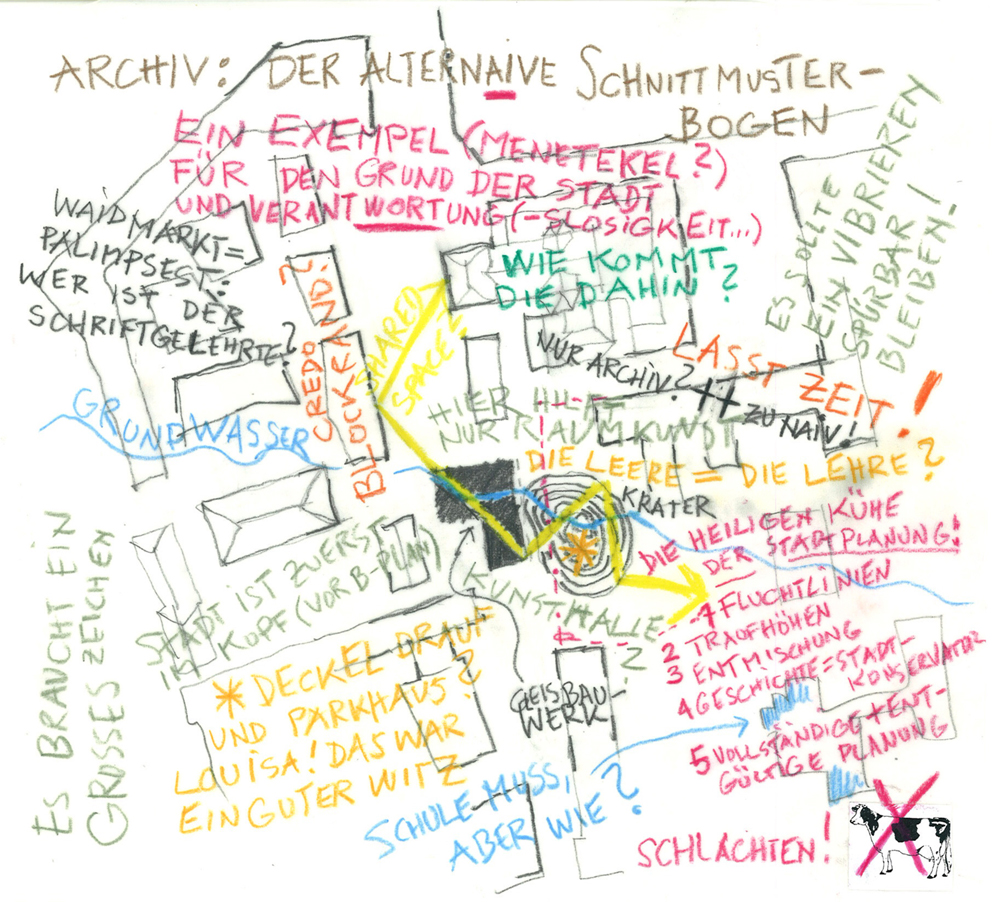 ARCHIV: DER ALTERNAIVE SCHNITTMUSTER-
BOGEN
EIN EXEMPEL (MENETEKEL?)
FÜR DEN GRUND DER STADT
UND VERANTWORTUNG (-SLOSIGKEIT...)
WAIDMARKT=
PALIMPSEST:
WER IST DER
SCHRIFTGELEHRTE?
CREDO
BLOCKRAND?
SHARED
SPACE?
WIE KOMMT
DIE DAHIN?
ES SOLLTE
EIN VIBRIEREN
SPÜRBAR
BLEIBEN!
NUR ARCHIV?
ZU NAIV!
LASST ZEIT!
GRUNDWASSER
HIER HILFT
NUR RAUMKUNST
DIE LEERE = DIE LEHRE?
KRATER
DIE HEILIGEN KÜHE
DER STADTPLANUNG!
1 FLUCHTLINIEN
2 TRAUFHÖHEN
3 ENTMISCHUNG
4 GESCHICHTE=STADT-
KONSERVATOR
5 VOLLSTÄNDIGE + ENT-
GÜLTIGE PLANUNG
SCHLACHTEN!
KUNST-HALLE
?
STADT IST ZUERST
IM KOPF (VOR B-PLAN)
ES BRAUCHT EIN
GROSSES ZEICHEN
* DECKEL DRAUF
UND PARKHAUS?
LOUISA! DAS WAR
EIN GUTER WITZ
GEISBAU-
WERK
SCHULE MUSS,
ABER WIE?